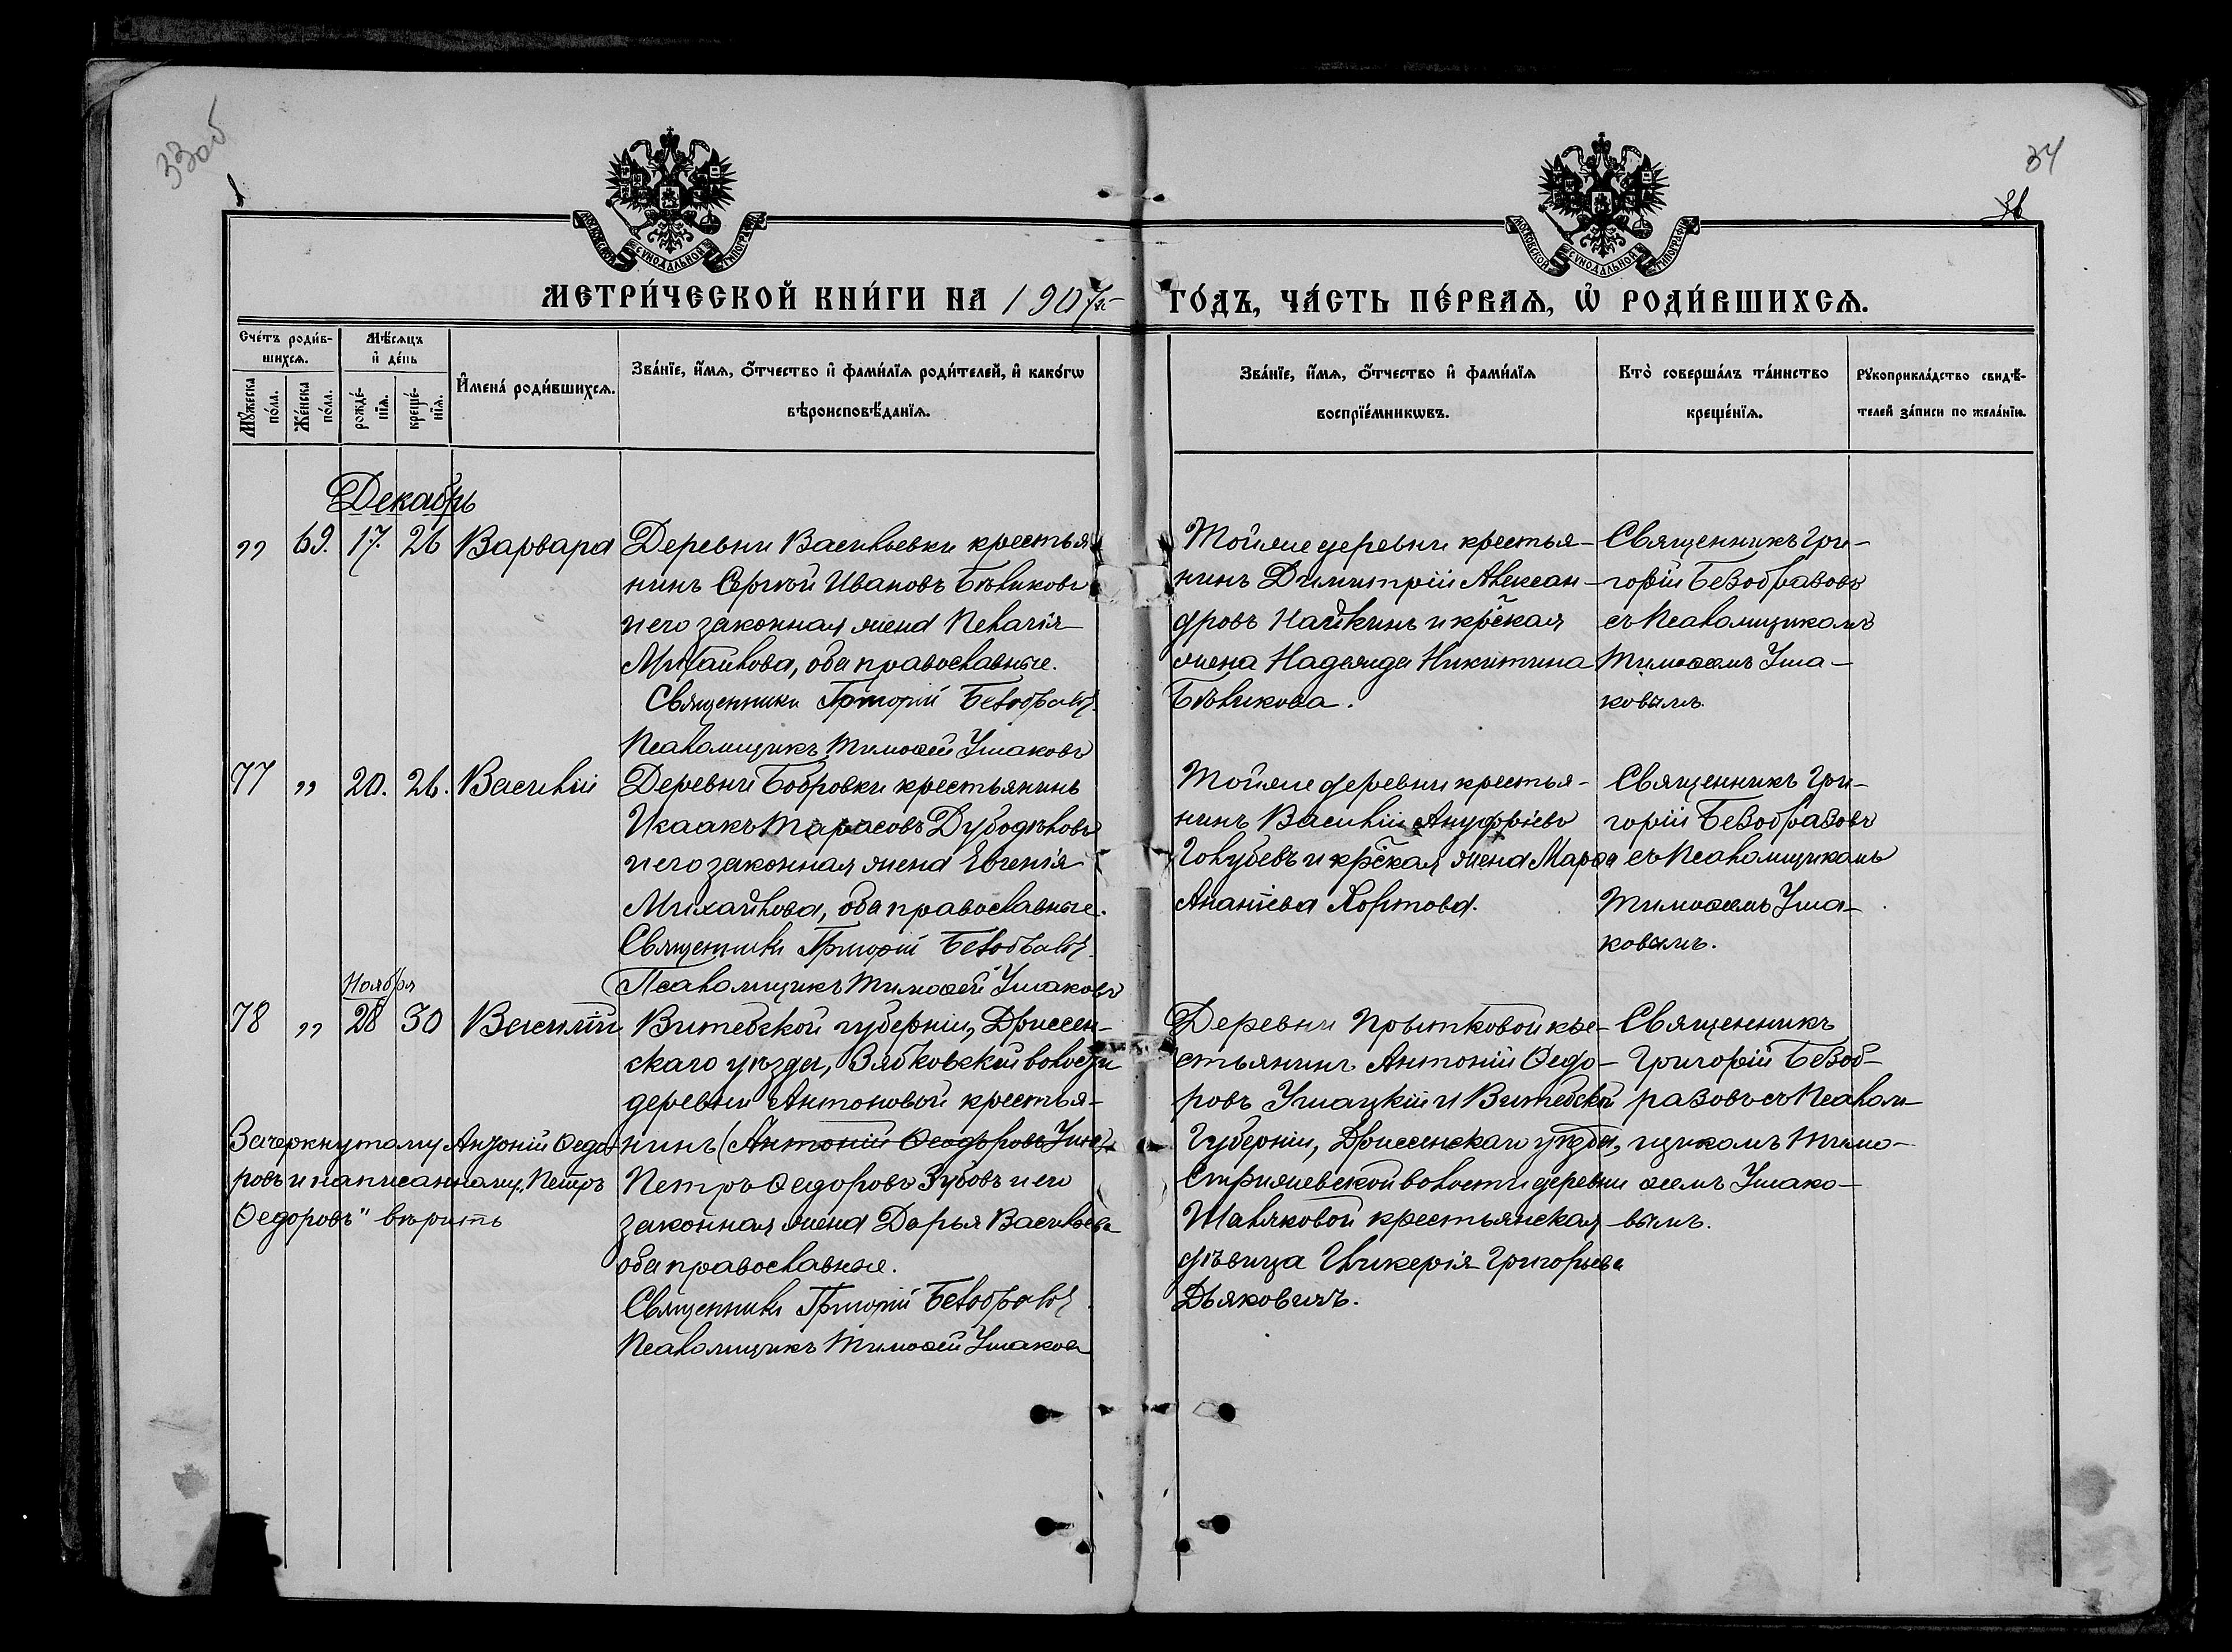 33об
34
МОСКОВСКОЙ СѴНОДАЛЬНОЙ ТИПОГРАФІИ
МОСКОВСКОЙ СѴНОДАЛЬНОЙ ТИПОГРАФІИ
МЕТРИ́ЧЕСКОЙ КНИ́ГИ НА 1907й
ГО́ДЪ, ЧА́СТЬ ПЕ́РВАѦ, Ѡ҆ РОДИ́ВШИХСѦ.
Сче́тъ роди́в-
шихсѧ.
Мѣ́сяцъ
и҆ де́нь
Мꙋ́жеска
по́ла.
Же́нска
по́ла.
рожде́-
нїѧ.
креще́-
нїѧ.
И҆мена́ роди́вшихсѧ.
Зва́нїе, и҆́мѧ, ѻ҆́тчество и҆ фами́лїѧ роди́телей, и҆ како́гѡ
вѣроисповѣ́данїѧ.
Зва́нїе, и҆́мѧ, ѻ҆́тчество и҆ фами́лїѧ
воспрїе́мникѡвъ.
Кто̀ соверша́лъ та́инство
креще́нїѧ.
Рꙋкоприкла́дство свидѣ́-
телей за́писи по жела́нїю.
Декабрь
„ 69. 17. 26 Варвара
Деревни Васильевки крестья
нинъ Сергѣй Ивановъ Бѣликовъ
и его законная жена Пелагія
Михайлова, оба православные.
Священникъ Григорій Безобразовъ
Псаломщикъ Тимоѳей Ушаковъ
Тойже деревни крестья-
нинъ Димитрій Алексан-
дровъ Найкинъ и кр̃ская
жена Надежда Никитина
Бѣликова.
Священникъ Гри-
горій Безобразовъ
съ Псаломщикомъ
Тимоѳеемъ Уша-
ковымъ.
77 „ 20. 26. Василій
Деревни Бобровки крестьянинъ
Исаакъ Тарасовъ Дубодѣловъ
и его законная жена Евгенія
Михайлова, оба православные.
Священникъ Григорій Безобразовъ
Псаломщикъ Тимоѳей Ушаковъ
Тойже деревни крестья-
нинъ Василій Ануфріевъ
Голубевъ и кр̃ская жена Марѳа
Ананіева
Священникъ Гри-
горій Безобразовъ
съ Псаломщикомъ
Тимоѳеемъ Уша-
ковымъ.
Ноября
78 „ 28 30 Василій
Витебской губерніи, Дриссен-
скаго уѣзда, Зябковской волости
деревни Антоновой крестья-
нинъ (Антоній Ѳеодоровъ
Петръ Ѳедоровъ Зубовъ и его
законная жена Дарья Васильева
оба православные.
Священникъ Григорій Безобразовъ
Псаломщикъ Тимоѳей Ушаковъ
Зачеркнутому Антоній Ѳедо
ровъ и написанному „Петръ
Ѳедоровъ" вѣрить
Деревни Прытковой кре-
стьянинъ Антоній Ѳедо-
ровъ Ушацкій и Витебской
Губерніи, Дриссенскаго уѣзда,
Стрижевской волости деревни
Шаляковой крестьянская
дѣвица Гликерія Григорьева
Дьяковичъ.
Священникъ
Григорій Безоб-
разовъ съ Псалом-
щикомъ Тимо-
ѳеемъ Ушако-
вымъ.